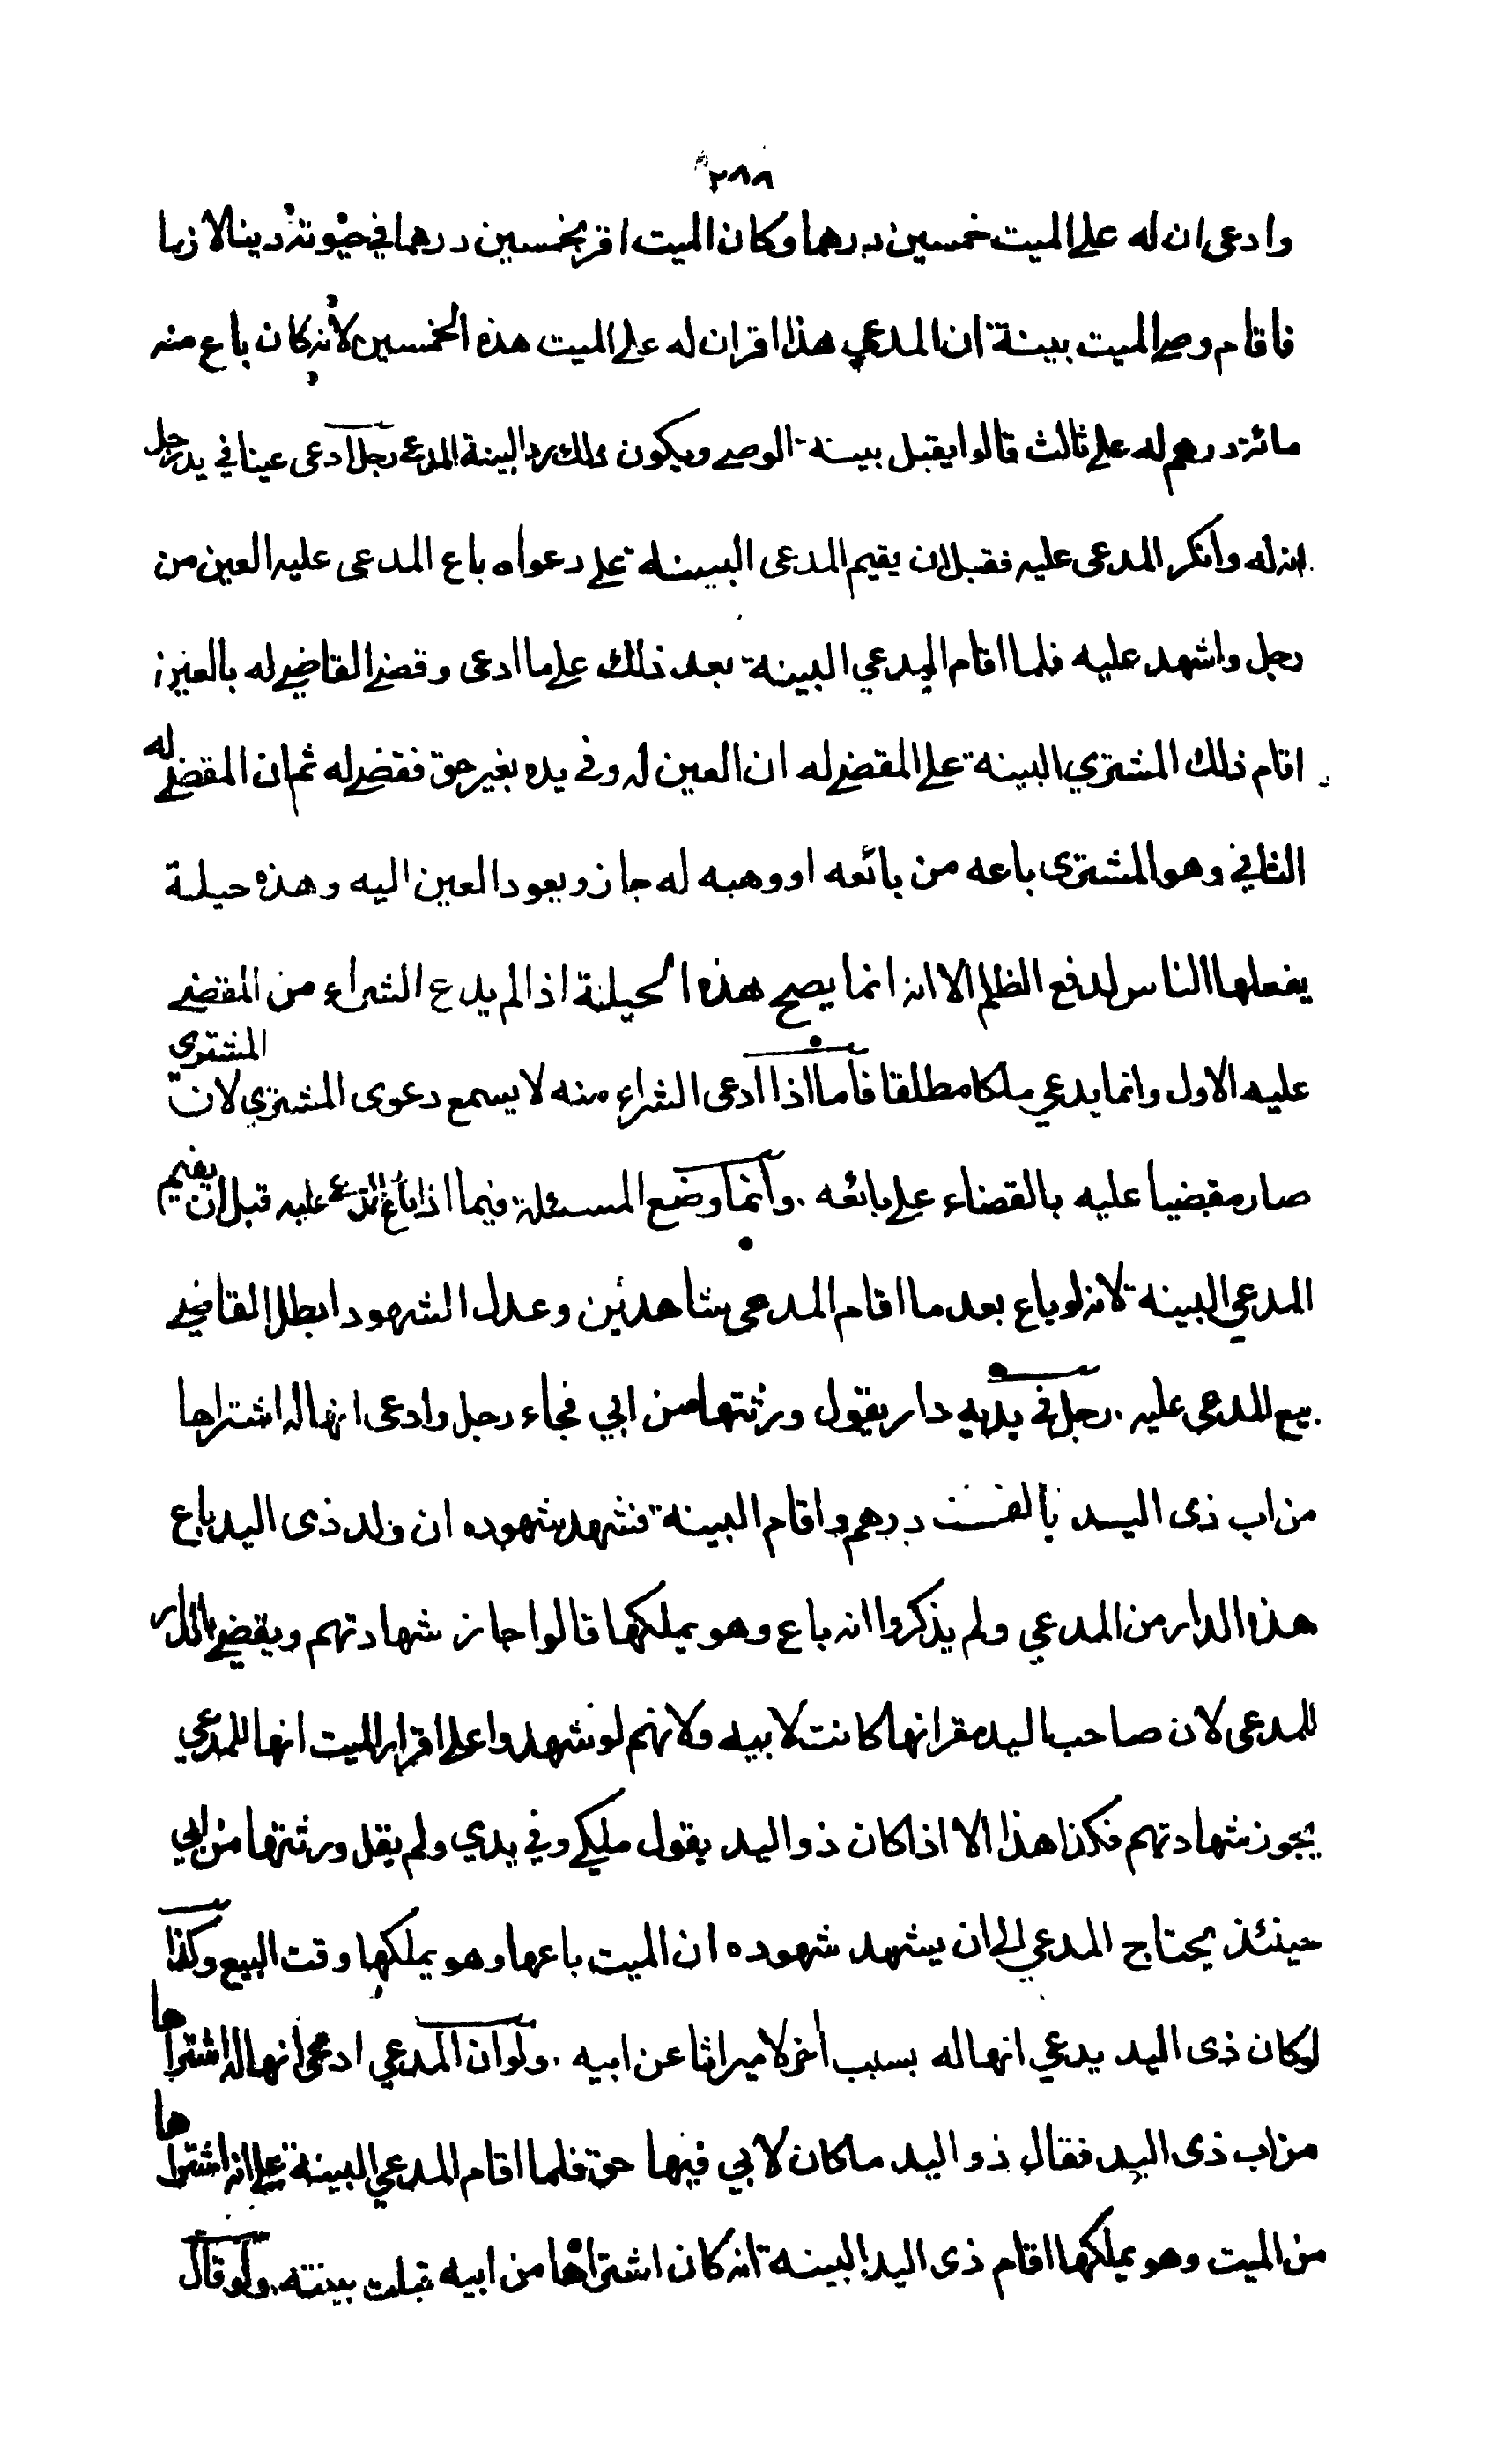 ٢٨٨
وادعى ان له على الميت خمسين درهما وكان الميت اقر بخمسين درهما في حيوته دينا لازما
فاقام وصي الميت بينة ان المدعي هذا اقر ان له على الميت هذه الخمسين لانه كان باع منه
مائة درهم له على ثالث قالوا يقبل بينة الوصي ويكون ذلك ردا لبينة المدعي رجل ادعى عينا في يد رجل
انه له وانكر المدعى عليه فقبل ان يقيم المدعى البينة على دعواه باع المدعى عليه العين من
رجل واشهد عليه فلما اقام المدعي البينة بعد ذلك على ما ادعى وقضى القاضي له بالعين
اقام ذلك المشتري البينة على المقضي له ان العين له وفي يده بغير حق فقضى له ثم ان المقضي له
الثاني وهو المشترى باعه من بائعه او وهبه له جاز ويعود العين اليه وهذه حيلة
يفعلها الناس لدفع الظلم الا انه انما يصح هذه الحيلة اذا لم يدع الشراء من المقضي
عليه الاول وانما يدعي ملكا مطلقا فاما اذا ادعى الشراء منه لا يسمع دعوى المشتري لان المشترى
صار مقضيا عليه بالقضاء على بائعه . وانما وضع المسئلة فيما اذا باع المدعى عليه قبل ان يقيم
المدعي البينة لانه لو باع بعد ما اقام المدعى شاهدين وعدل الشهود ابطل القاضي
بيع المدعى عليه . رجل في يديه دار يقول ورثتها من ابي فجاء رجل وادعى انها له اشتراها
من اب ذى اليد بالف درهم واقام البينة فشهد شهوده ان ولد ذى اليد باع
هذه الدار من المدعي ولم يذكروا انه باع وهو يملكها قالوا جاز شهادتهم ويقضي بالدار
للمدعى لان صاحب اليد مقر انها كانت لابيه ولانهم لو شهدوا على اقرار الميت انها للمدعي
يجوز شهادتهم فكذا هذا الا اذا كان ذو اليد يقول ملكي وفي يدي ولم يقل ورثتها من ابي
حينئذ يحتاج المدعي الى ان يشهد شهوده ان الميت باعها وهو يملكها وقت البيع وكذا
لو كان ذى اليد يدعي انها له بسبب اخر لا ميراثا عن ابيه . ولو ان المدعي ادعى انها له اشتراها
من اب ذى اليد فقال ذو اليد ما كان لابي فيها حق فلما اقام المدعي البينة على انه اشتراها
من الميت وهو يملكها اقام ذى اليد البينة انه كان اشتراها من ابيه قبلت بينته . ولو قال